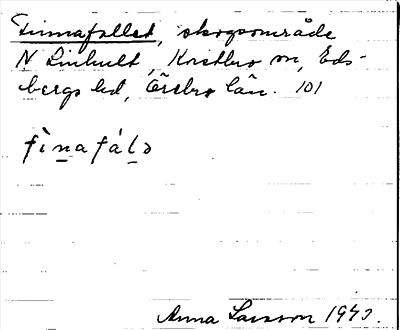 Finnafallet, skogsområde
N Linhult, Kvistbro sn, Eds-
bergs hd, Örebro län. 101
fìnafáḷə
Anna Larsson 1940.